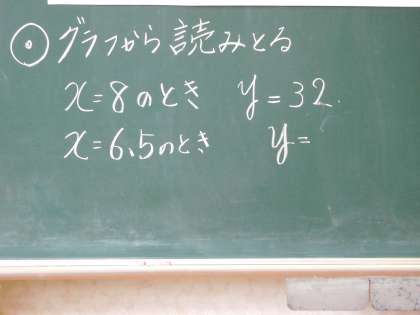 ⦿グラフから読みとる
x=8のとき y=32.
x=6.5のとき y=